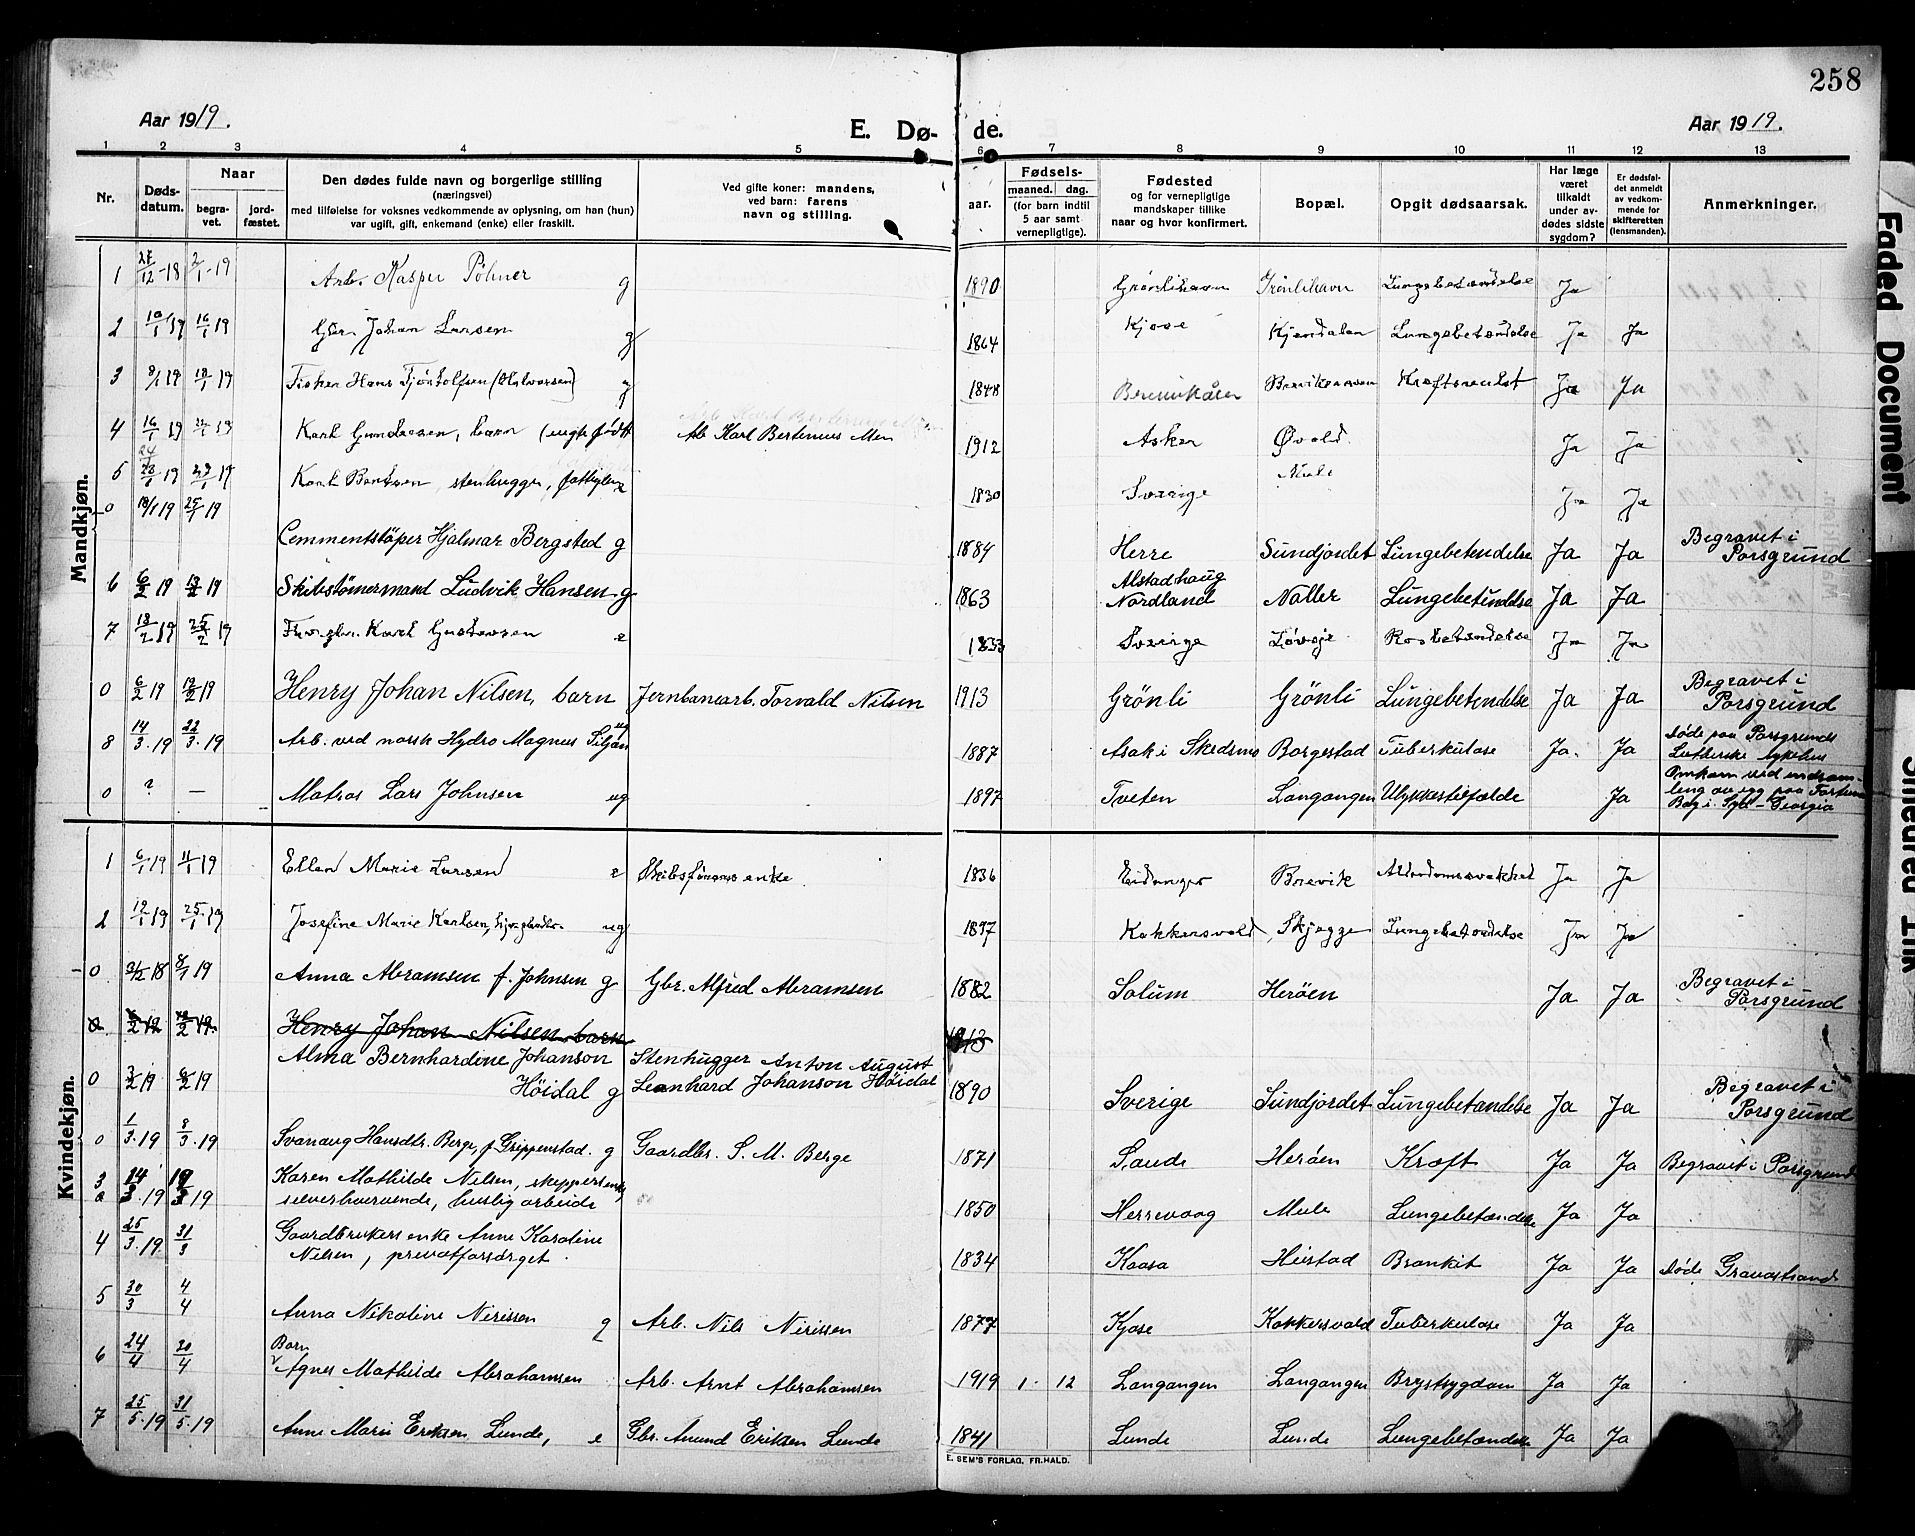 258
Aar 1919.
E. Dø-
de.
Aar 1919.
1 2 3 4 5 6 7 8 9 10 11 12 13
Nr.
Døds-datum.
Naar
begra-vet.
jord-fæstet.
Den dødes fulde navn og borgerlige stilling
(næringsvei)
med tilføielse for voksnes vedkommende av oplysning, om han (hun)
var ugift, gift, enkemand (enke) eller fraskilt.
Ved gifte koner: mandens,
ved barn: farens
navn og stilling.
aar.
Fødsels-
maaned. dag.
(for barn indtil
5 aar samt
vernepligtige).
Fødested
og for vernepligtige
mandskaper tillike
naar og hvor konfirmert.
Bopæl.
Opgit dødsaarsak.
Har læge
været
tilkaldt
under av-
dødes sidste
sygdom?
Er dødsfal-
det anmeldt
av vedkom-
mende for
skifteretten
(lensmanden).
Anmerkninger.
Mandkjøn.
1 2/1-19 Arb. Kasper Pöhner g 1890 Grönlihavn Grönlihavn Lungebetændelse Ja
2 10/1 19 16/1 19 Gbr. Johan Larsen g 1864 Kjose Kjendalen Lungebetændelse Ja Ja
3 9/1 19 18/1 19 Fisker Hans Tjöstolfsen (Halvorsen) g 1848 Brevikåsen Kræftsvulst Ja Ja
4 16/1 19 Karl Gundersen, barn (uegte født Ab Karl Bertinius Moen 1912 Asker Øvald Ja Ja
5 Karl Berntsen, stenhugger, fattiglem 1830 Sverige Mule Ja Ja
0 18/1 19 25/1 19
Cementstöper Hjalmar Bergsted g 1884 Herre Sundjordet Lungebetendelse Ja Ja Begravet i
Porsgrund
6 6/2 19 Skibstömermand Ludvik Hansen g 1863 Alstadhaug
Nordland Naller Lungebetendelse Ja Ja
7 18/2 19 25/2 19 Karl Gustavsen e 1833 Sverige Lövsje Ja Ja
0 6/2 19 Henry Johan Nilsen, barn Jernbanearb. Torvald Nilsen 1913 Grönli Grönli Lungebetendelse Ja Ja Begravet i
Porsgrund
8 14/3.19 22/3.19 Arb. ved norsk Hydro Magnus Siljan ug 1887 Asak i Skedsmo Borgestad Tuberkulose Ja. Ja Döde paa Porsgrunds
Lutherske sykehus
0 ? — Matros Lars Johnsen ug 1897 Tveten Langangen Ulykkestilfælde Ja Omkom ved indsam-
ling av egg paa Fortuna
Bay i Syd-Georgia
Kvindekjøn.
1 6/1 19 11/1 19 Ellen Marie Larsen e Skibsförers enke. 1836 Eidanger Brevik Alderdomssvakhet Ja Ja
2 19/1 19 25/1.19 Josefine Marie Karlsen, ug 1897 Kokkersvold Skjegge Lungebetændelse Ja Ja
0 8/1 19 Anna Abramsen f. Johnsen g Gbr. Alfred Abramsen 1882 Solum Heröen Ja Ja Begravet i
Porsgrund
Henry Johan Nilsen barn 1913
0 Alma Bernhardine Johanson
Höidal g Stenhugger Anton August
Leonhard Johanson Höidal 1890 Sverige Sundjordet Lungebetændelse Ja Ja Begravet i
Porsgrund
0 1/3.19 8/3.19 Svanaug Hansdtr. Berge, f. Grippenstad. g Gaardbr. S. M. Berge 1871 Sande Heröen Kræft Ja Ja Begravet i Porsgrund
3 14/3.19 19/3 19 Karen Mathilde Nilsen, skippersenke,
selverhvervende, huslig arbeide 1850 Herrevaag Mule Lungebetændelse Ja Ja
4 25/3.19 31/3 Gaardbrukers enke Anne Karoline
Nilsen, privatforsørget. 1834 Kaasa Heistad Bronkit Ja Ja döde Gravastrand
5 30/3 4/4 Anna Nikoline Nirissen g Arb. Nils Nirissen 1877 Kjose Kokkersvold Tuberkulose Ja Ja
6 24/4 30/4 Barn
Agnes Mathilde Abrahamsen Arb. Arnt Abrahamsen 1919 1. 12 Langangen Langangen Brystsygdom Ja Ja
7 25/5.19 31/5.19 Anne Marie Eriksen Lunde, e Gbr. Anund Eriksen Lunde 1841 Lunde Lunde Lungebetændelse Ja Ja
E. SEM'S FORLAG, FR.HALD.
Faded Document
Smeared Ink